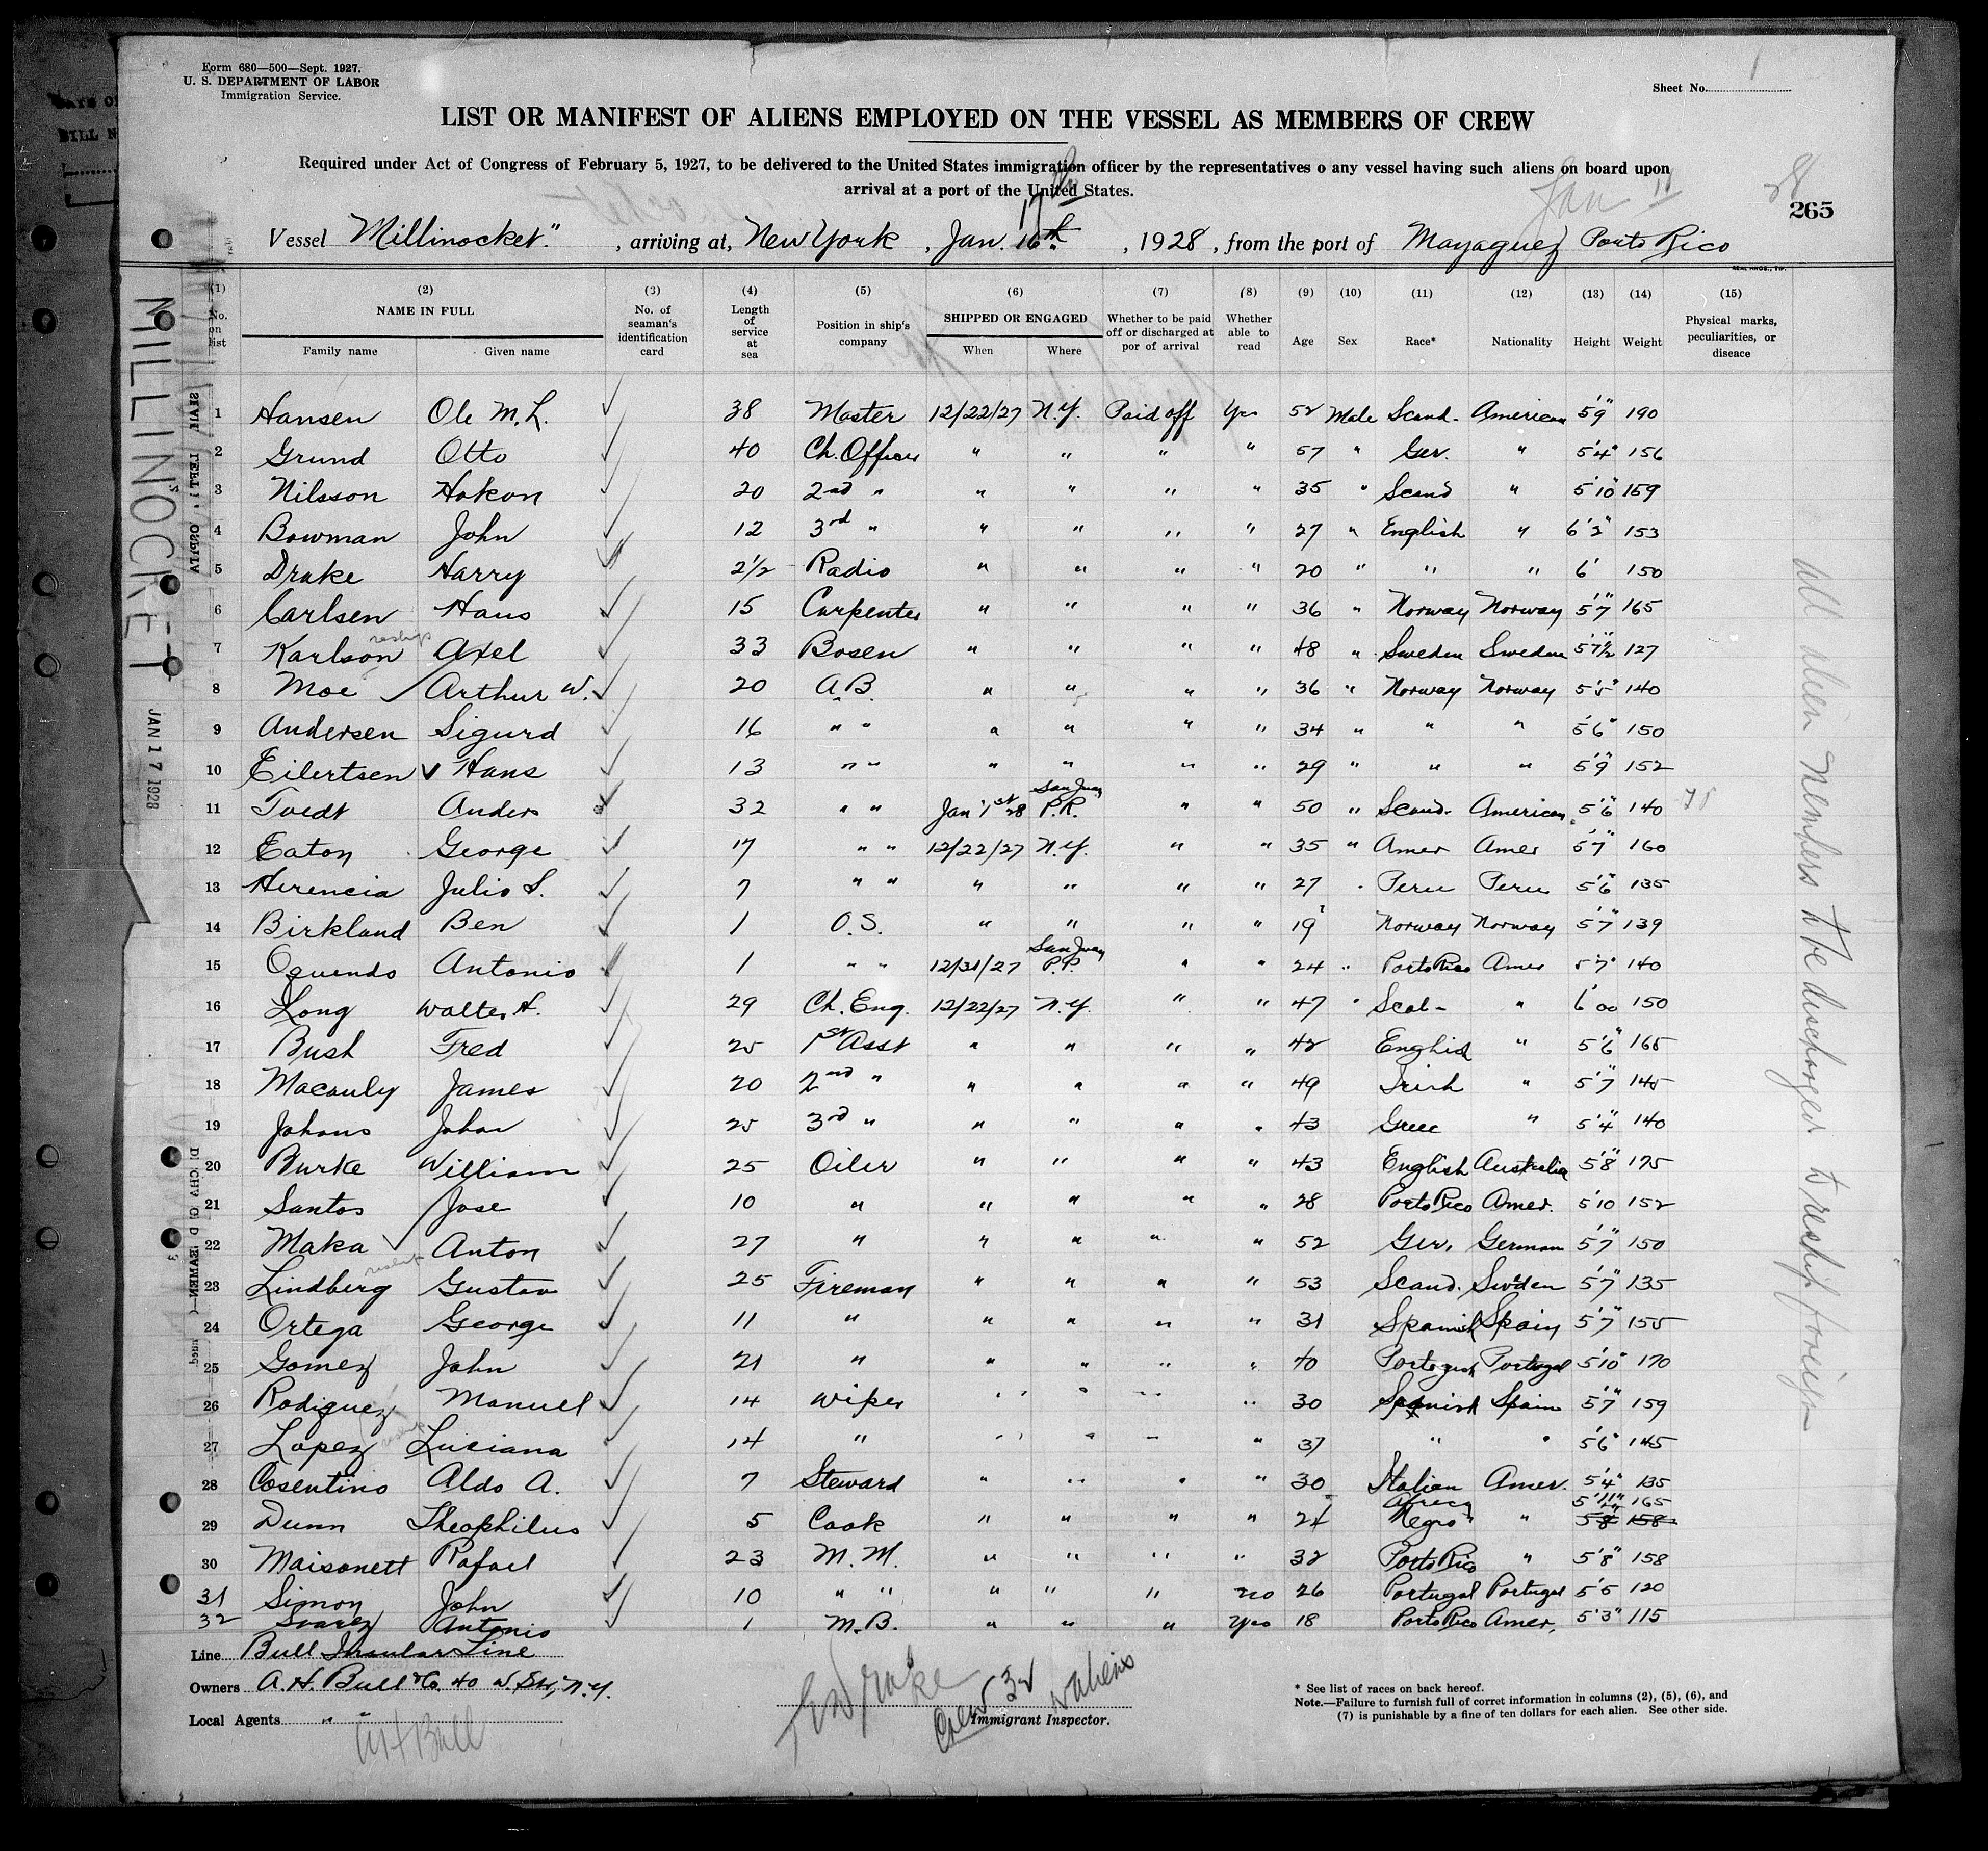 Form 680—500—Sept. 1927.
U. S. DEPARTMENT OF LABOR
Immigration Service.
Sheet No. 1
LIST OR MANIFEST OF ALIENS EMPLOYED ON THE VESSEL AS MEMBERS OF CREW
Required under Act of Congress of February 5, 1927, to be delivered to the United States immigration officer by the representatives o any vessel having such aliens on board upon
arrival at a port of the United States.
Jan 11
28
265
17th
Vessel Millinocket" , arriving at, New York , Jan. 16th , 1928 , from the port of Mayaguez Porto Rico
(1) (2) (3) (4) (5) (6) (7) (8) (9) (10) (11) (12) (13) (14) (15)
No. on list NAME IN FULL Family name Given name No. of seaman's identification card Length of service at sea Position in ship's company SHIPPED OR ENGAGED When Where Whether to be paid off or discharged at por of arrival Whether able to read Age Sex Race* Nationality Height Weight Physical marks, peculiarities, or diseace
1 Hansen Ole M. L. ✓ 38 Master 12/22/27 N.Y. Paid off Yes 52 Male Scand. American 5'9" 190
2 Grund Otto ✓ 40 Ch. Officer " " " " 57 " Ger. " 5'4" 156
3 Nilsson Hakon ✓ 20 2nd " " " " " 35 " Scand " 5'10" 159
4 Bowman John ✓ 12 3rd " " " " " 27 " English " 6'2" 153
5 Drake Harry ✓ 2½ Radio " " " " 20 " " " 6' 150
6 Carlsen Hans ✓ 15 Carpenter " " " " 36 " Norway Norway 5'7" 165
7 Karlson reships Axel ✓ 33 Bosen " " " " 48 " Sweden Sweden 5'7½" 127
8 Moe Arthur W. ✓ 20 A.B. " " " " 36 " Norway Norway 5'5" 140
9 Andersen Sigurd ✓ 16 " " " " " " 34 " " " 5'6" 150
10 Eilertsen ✓ Hans ✓ 13 " " " " " " 29 " " " 5'9" 152
11 Tvedt Anders ✓ 32 " " Jan 1st 28 San Juan P.R. " " 50 " Scand. American 5'6" 140
12 Eaton George ✓ 17 " " 12/22/27 N.Y. " " 35 " Amer Amer 5'7" 160
13 Herencia Julio S. ✓ 7 " " " " " " 27 " Peru Peru 5'6" 135
14 Birkland Ben ✓ 1 O.S. " " " " 19 Norway Norway 5'7" 139
15 Oquendo Antonio ✓ 1 " " 12/31/27 San Juan P.R. " " 24 " Porto Rico Amer 5'7" 140
16 Long Walter H. ✓ 29 Ch. Eng. 12/22/27 N.Y. " " 47 " Scot- " 6'00 150
17 Bush Fred ✓ 25 1st Asst " " " " 42 English " 5'6" 165
18 Macauly James ✓ 20 2nd " " " " " 49 Irish " 5'7" 145
19 Johans John ✓ 25 3rd " " " " " 43 Greec " 5'4" 140
20 Burke William ✓ 25 Oiler " " " " 43 English Australia 5'8" 175
21 Santos Jose ✓ 10 " " " " " 28 Porto Rico Amer. 5'10 152
22 Maka ✓ Anton ✓ 27 " " " " " 52 Ger. German 5'7" 150
23 Lindberg reships Gustav ✓ 25 Fireman " " " " 53 Scand. Sweden 5'7" 135
24 Ortega George ✓ 11 " " " " " 31 Spanish Spain 5'7" 155
25 Gomez John ✓ 21 " " " " " 40 Portuguese Portugal 5'10" 170
26 Rodiguez Manuel ✓ 14 Wiper " " " " 30 Spanish Spain 5'7" 159
27 Lopez Luciana ✓ 14 " " " " " 37 " " 5'6" 145
28 Cosentino Aldo A. ✓ 7 Steward " " " " 30 Italian Amer. 5'4" 135
29 Dunn Theophilus ✓ 5 Cook " " " " 24 Africa Negro " 5'11" 165 5'8" 158
30 Maisonett Rafael ✓ 23 M. M. " " " " 32 Porto Rico " 5'8" 158
31 Simon John ✓ 10 " " " " " no 26 Portugal Portugal 5'5 120
32 Suarez Antonio ✓ 1 M.B. " " " Yes 18 Porto Rico Amer. 5'3" 115
Line Bull Insular Line
Owners A. H. Bull & Co. 40 W. St., N.Y.
Local Agents " "
AH Bull
Drake
Crew 32
Immigrant Inspector.
* See list of races on back hereof.
Note.—Failure to furnish full of corret information in columns (2), (5), (6), and
(7) is punishable by a fine of ten dollars for each alien. See other side.
MILLINOCKET
JAN 17 1928
All alien members to be discharged to reship foreign